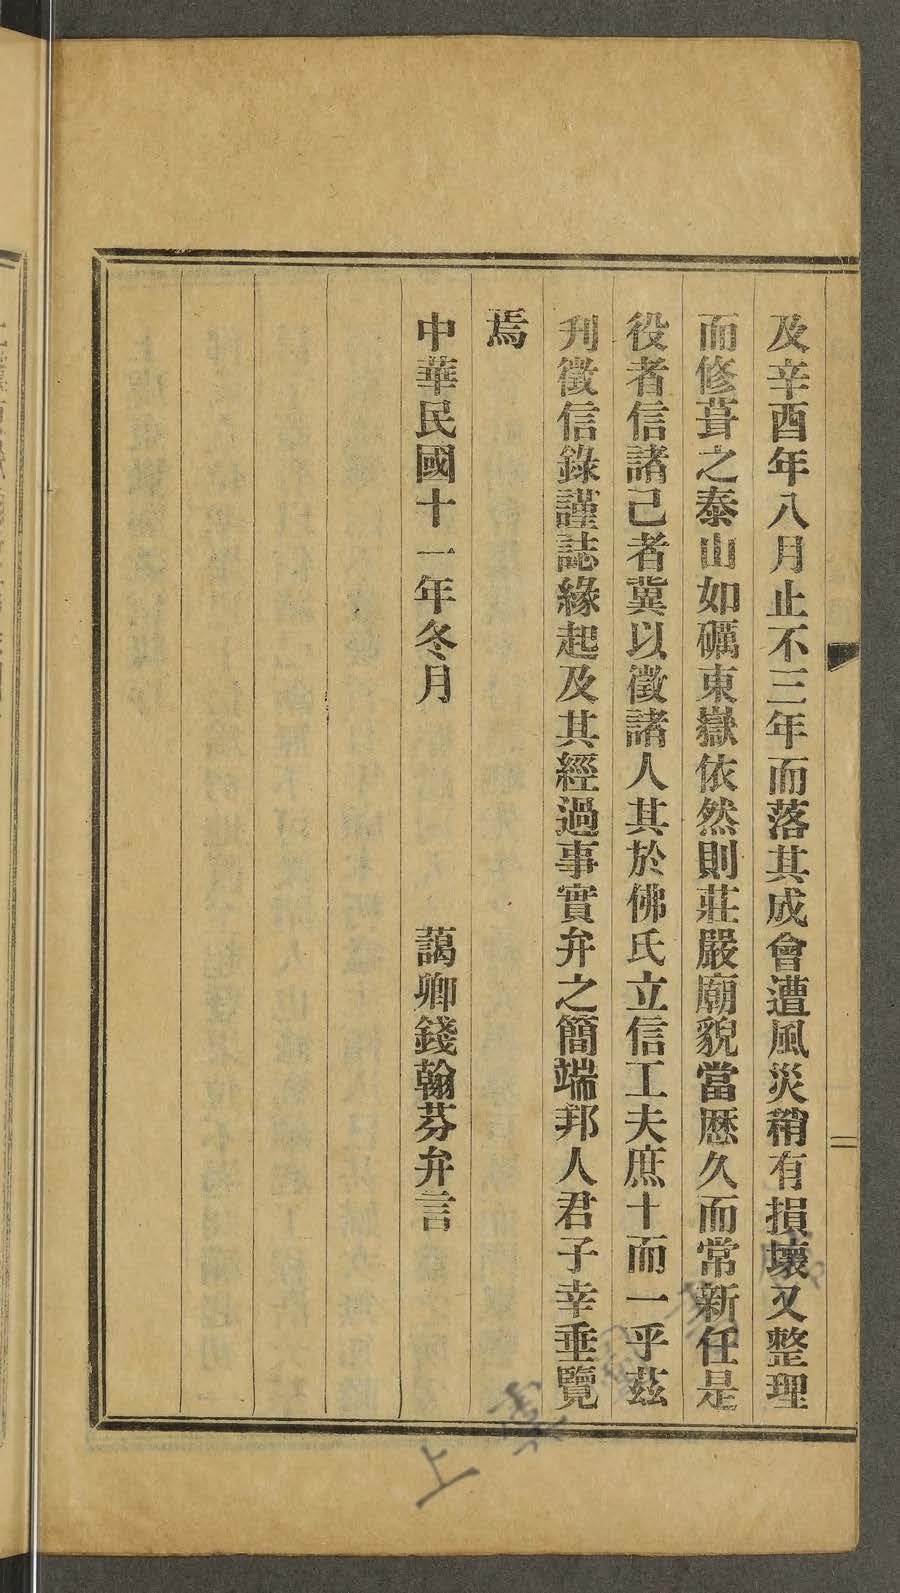 及辛酉年八月止不三年而落其成會遭風災稍有損壞又整理
而修葺之泰山如礪東嶽依然則莊嚴廟貌當歷久而常新任是
役者信諸己者冀以徵諸人其於佛氏立信工夫庶十而一乎茲
刊徵信錄謹誌緣起及其經過事實弁之簡端邦人君子幸垂覽
焉
中華民國十一年冬月　　藹卿錢翰芬弁言
二
上虞